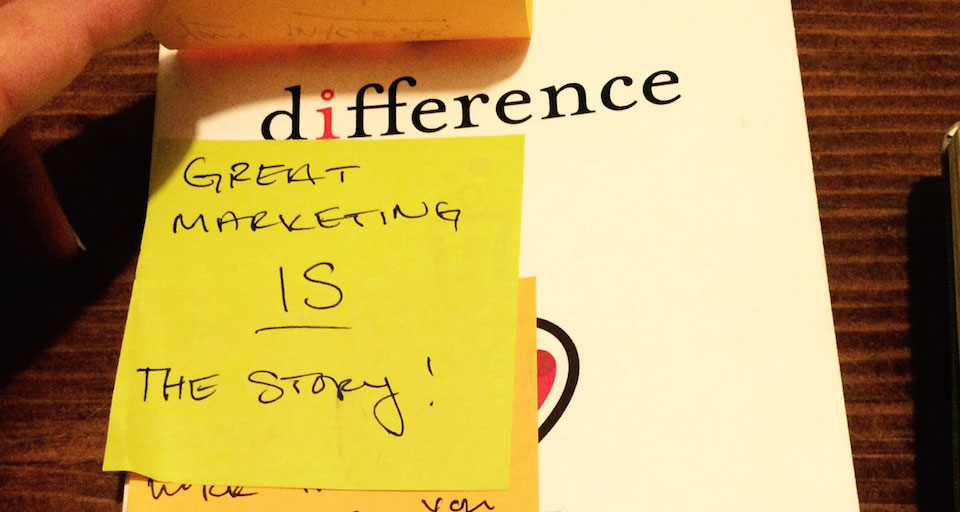 difference
GREAT
MARKETING
IS
THE STORY!
you